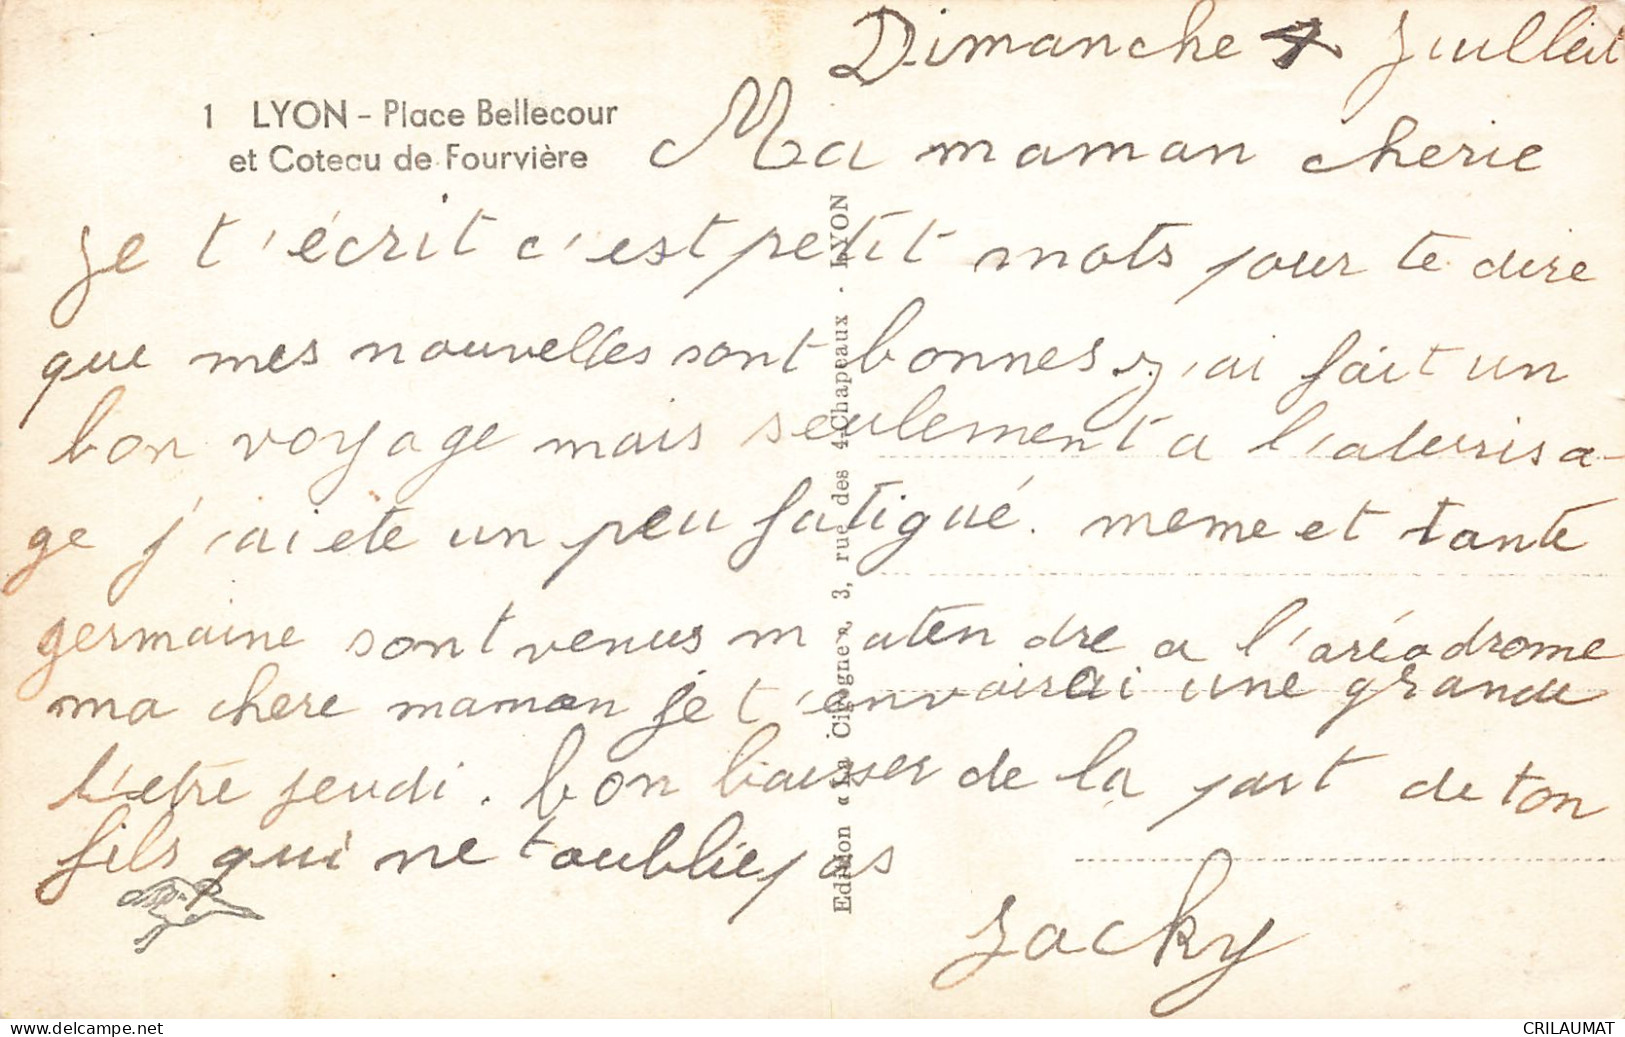 Dimanche 7 Juillet
1 LYON - Place Bellecour
et Coteau de Fourvière
Ma maman cherie
je t'écrit c'est petit mots pour te dire
que mes nouvelles sont bonnes j'ai fait un
bon voyage mais seulement a l'aterrisa-
ge j'ai ete un peu fatigué. meme et tante
germaine sont venus m atendre a l'aréodrome
ma chere maman je t'envoirai une grande
l'etre jeudi. bon baisser de la part de ton
fils qui ne t oublie pas
Jacky
Edition « La Cigogne », 3, rue des 4-Chapeaux - LYON
CRILAUMAT
www.delcampe.net